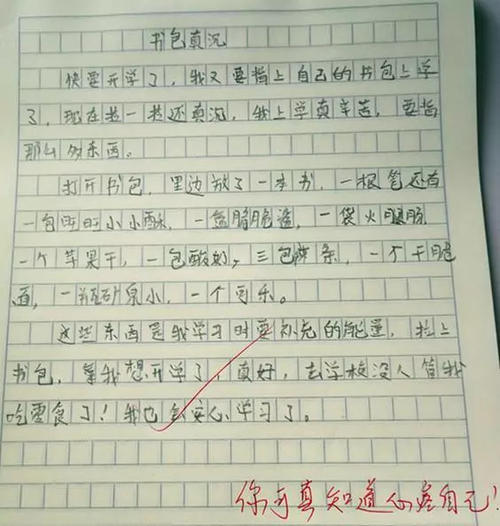 书包真沉
快要开学了，我又要背上自己的书包上学
了，现在背一背还真沉，我上学真辛苦，要背
那么多东西。
打开书包，里边放了一本书，一根笔还有
一包旺旺小小酥，一盒脆脆鲨，一袋火腿肠
一个苹果干，一包酸奶，三包辣条，一个干脆
面，一瓶矿泉水，一个可乐。
这些东西是我学习时要补充的能量，背上
书包，我想开学了，真好，去学校没人管我
吃零食了！我也会安心学习了。
你可真知道心疼自己！